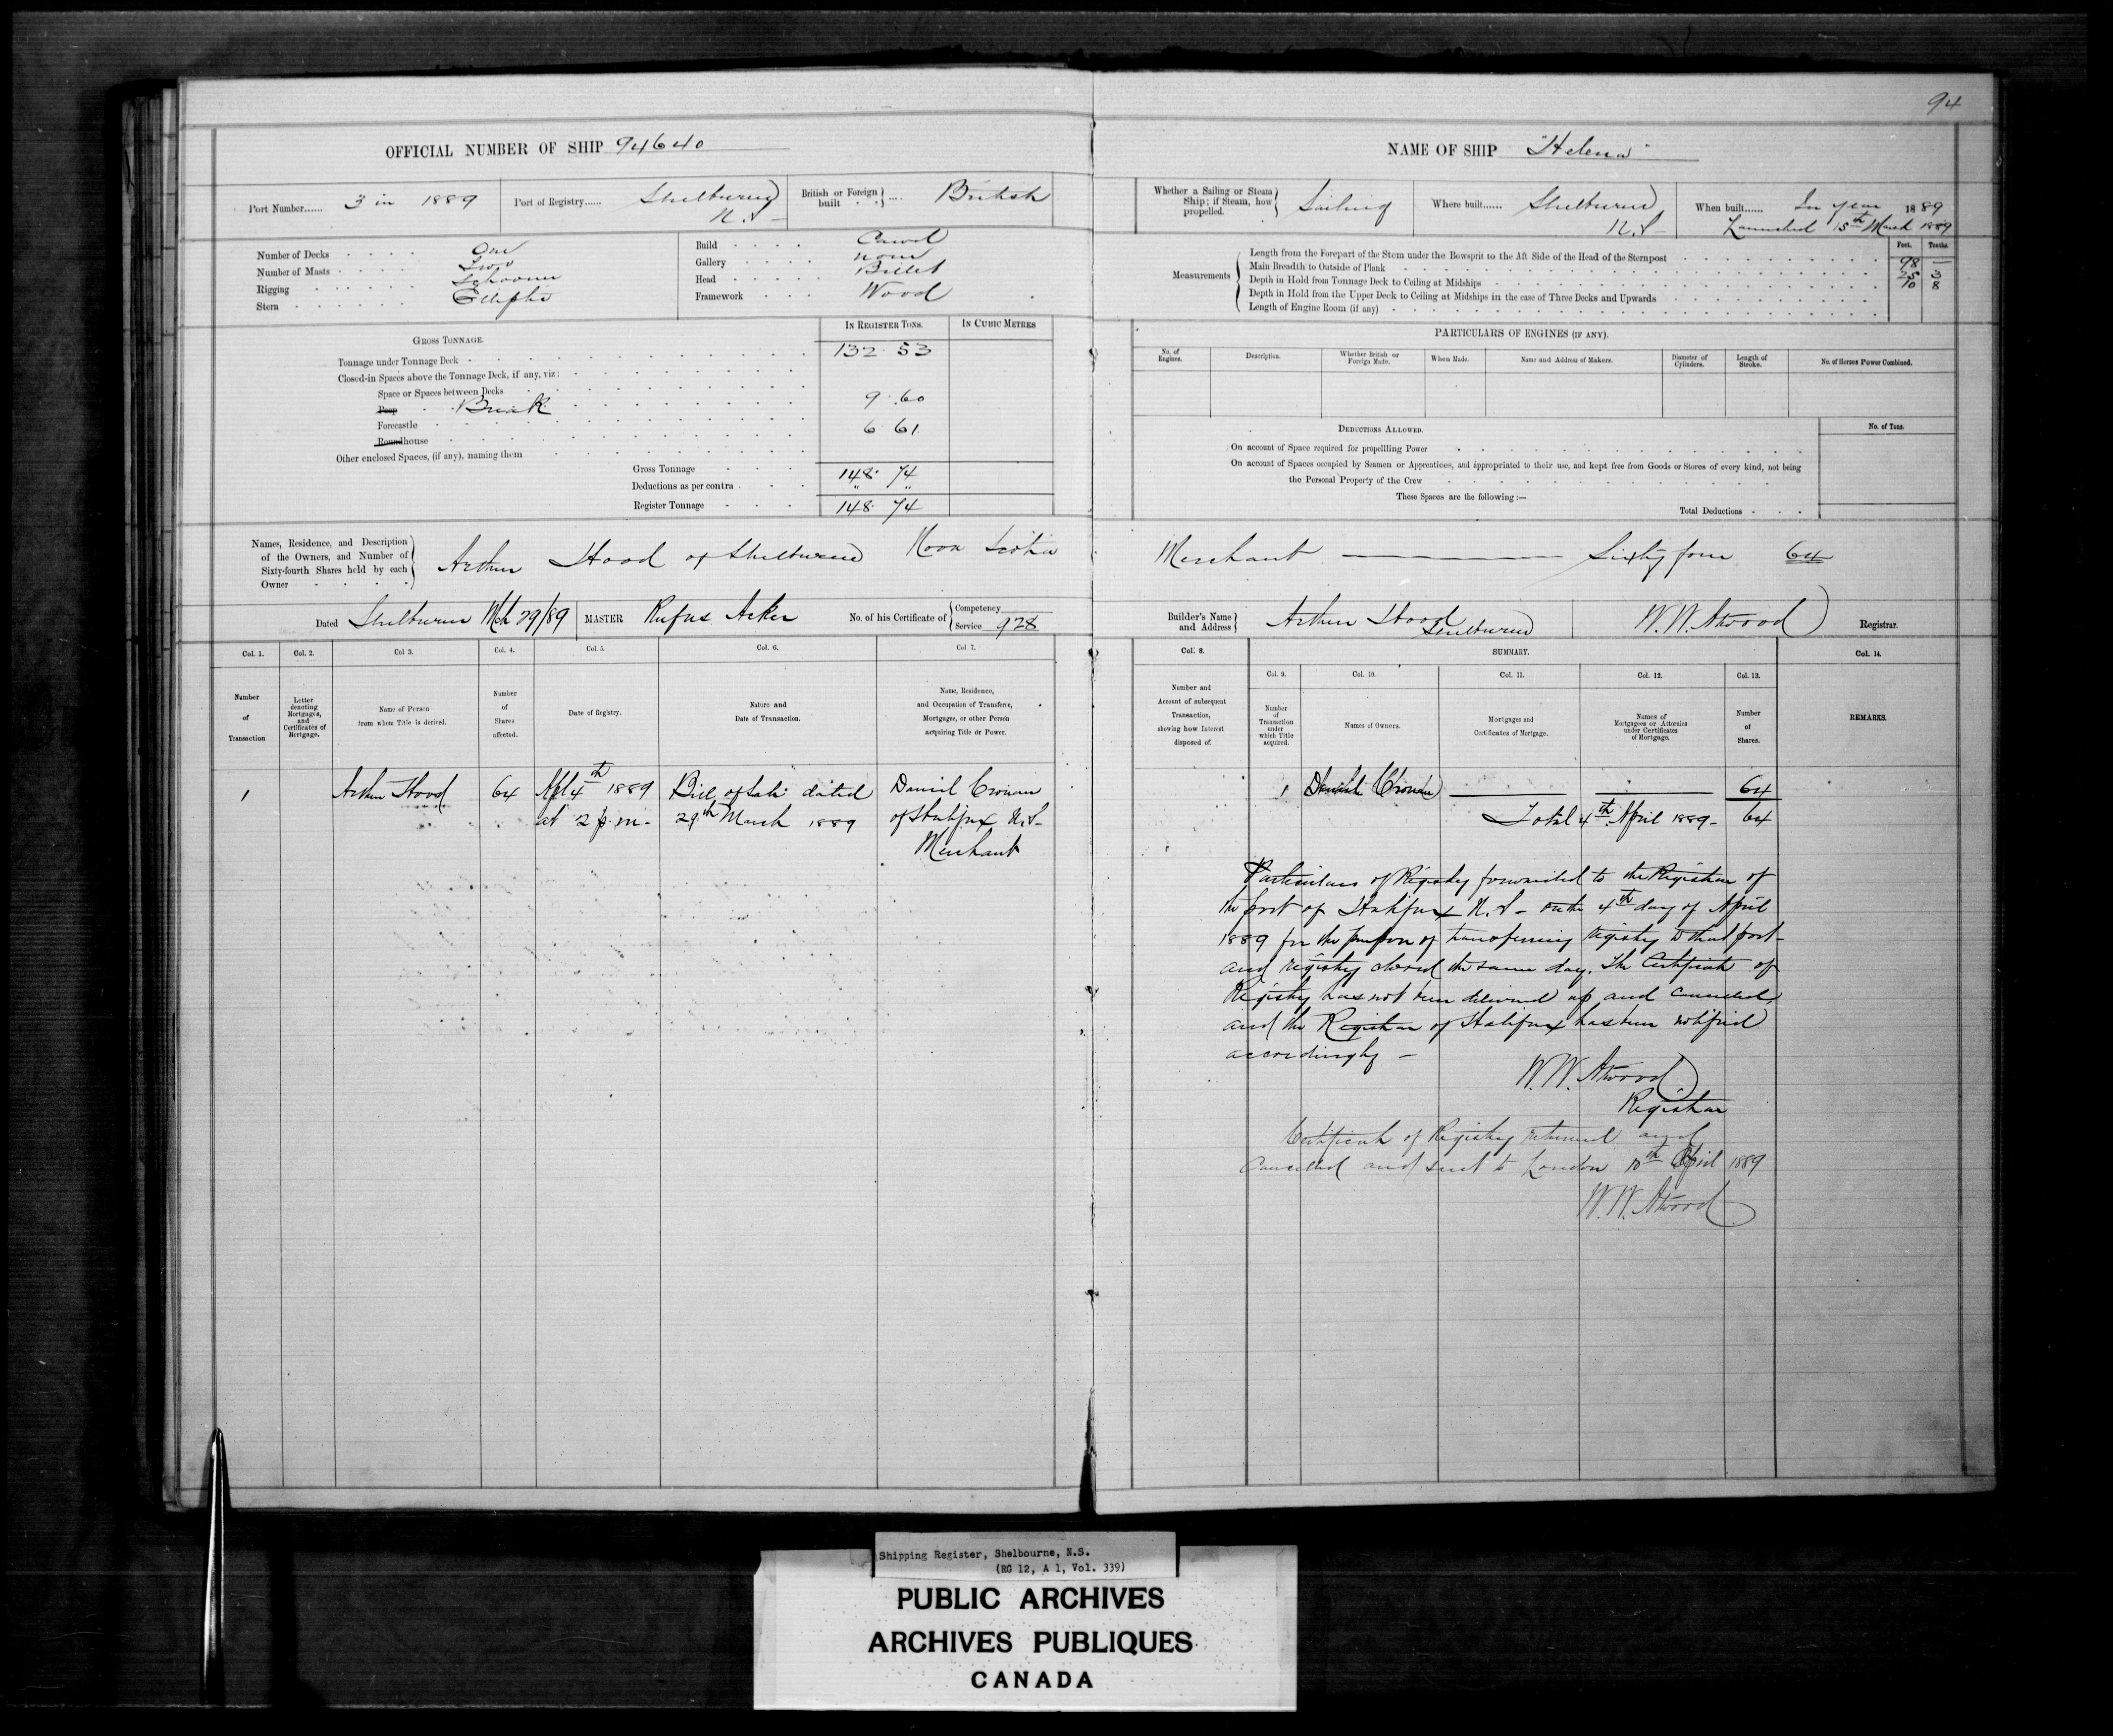 94
OFFICIAL NUMBER OF SHIP 94640
NAME OF SHIP "Helena"
Port Number...... 3 in 1889
Port of Registry...... Shelburne N.S-
British or Foreign built .... British
Number of Decks One
Number of Masts Two
Rigging Schooner
Stern Elliptic
Build Carvel
Gallery none
Head Billet
Framework Wood
GROSS TONNAGE.
IN REGISTER TONS. IN CUBIC METRES
Tonnage under Tonnage Deck 132. 53
Closed-in Spaces above the Tonnage Deck, if any, viz:
Space or Spaces between Decks
Poop Break 9. 60
Forecastle
Roundhouse 6 61
Other enclosed Spaces, (if any), naming them
Gross Tonnage 148. 74
Deductions as per contra " "
Register Tonnage 148. 74
Whether a Sailing or Steam Ship; if Steam, how propelled. Sailing
Where built...... Shelburne N.S-
When built...... In year 1889
Launched 15th March 1889
Feet. Tenths.
Measurements
Length from the Forepart of the Stem under the Bowsprit to the Aft Side of the Head of the Sternpost 98 —
Main Breadth to Outside of Plank 25 3
Depth in Hold from Tonnage Deck to Ceiling at Midships 10 8
Depth in Hold from the Upper Deck to Ceiling at Midships in the case of Three Decks and Upwards
Length of Engine Room (if any)
PARTICULARS OF ENGINES (IF ANY).
No. of Engines. Description. Whether British or Foreign Made. When Made. Name and Address of Makers. Diameter of Cylinders. Length of Stroke. No. of Horses Power Combined.
DEDUCTIONS ALLOWED. No. of Tons.
On account of Space required for propellling Power
On account of Spaces occupied by Seamen or Apprentices, and appropriated to their use, and kept free from Goods or Stores of every kind, not being
the Personal Property of the Crew
These Spaces are the following:—
Total Deductions
Names, Residence, and Description of the Owners, and Number of Sixty-fourth Shares held by each Owner
Arthur Hood of Shelburne Nova Scotia Merchant — Sixty four 64
Dated Shelburne Mch 29/89 MASTER Rufus Acker No. of his Certificate of Competency Service 928
Builder's Name and Address Arthur Hood Shelburne
W. W. Atwood Registrar.
Col. 1. Col. 2. Col 3. Col. 4. Col. 5. Col. 6. Col 7.
Number of Transaction
Letter denoting Mortgages, and Certificates of Mortgage.
Name of Person from whom Title is derived.
Number of Shares affected.
Date of Registry.
Nature and Date of Transaction.
Name, Residence, and Occupation of Transferee, Mortgagee, or other Person acquiring Title or Power.
1 Arthur Hood 64 Apl 4th 1889 Bill of Sale dated Daniel Cronan
at 2 p.m- 29th March 1889 of Halifax N.S-
Merchant
Col. 8. SUMMARY. Col. 14.
Col. 9. Col. 10. Col. 11. Col. 12. Col. 13.
Number and Account of subsequent Transaction, showing how Interest disposed of.
Number of Transaction under which Title acquired.
Names of Owners.
Mortgages and Certificates of Mortgage.
Names of Mortgagees or Attornies under Certificates of Mortgage.
Number of Shares.
REMARKS.
1 Daniel Cronan 64
Total 4th April 1889- 64
Particulars of Registry forwarded to the Registrar of
the port of Halifax N.S- on the 4th day of April
1889 for the purpose of transferring registry to that port-
and registry closed the same day. The Certificate of
Registry has not been delivered up and cancelled,
and the Registrar of Halifax has been notified
accordingly -
W. W. Atwood
Registrar
Certificate of Registry returned and
Cancelled and sent to London 10th April 1889
W. W. Atwood
Shipping Register, Shelbourne, N.S.
(RG 12, A 1, Vol. 339)
PUBLIC ARCHIVES
ARCHIVES PUBLIQUES
CANADA